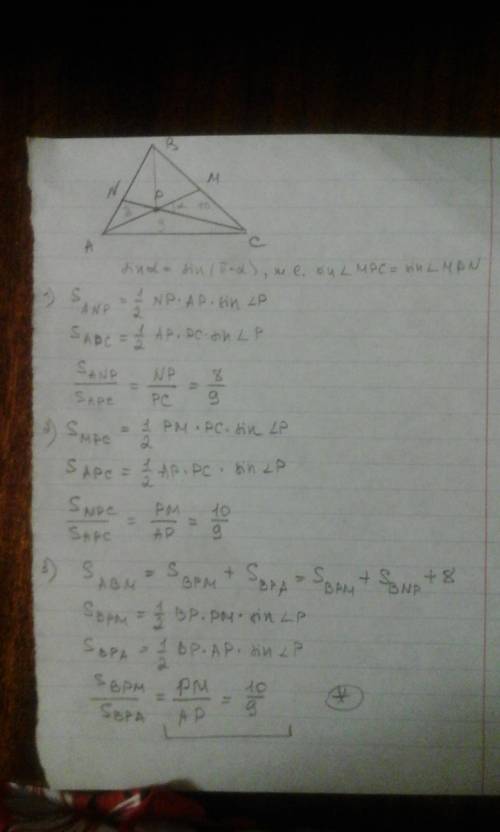 B
N
M
P
8
α
10
9
A
C
sin α = sin(π-α), т.е. sin∠MPC = sin∠APN
1) S_ANP = 1/2 NP · AP · sin ∠P
S_APC = 1/2 AP · PC · sin ∠P
S_ANP / S_APC = NP / PC = 8 / 9
2) S_MPC = 1/2 PM · PC · sin ∠P
S_APC = 1/2 AP · PC · sin ∠P
S_MPC / S_APC = PM / AP = 10 / 9
3) S_ABM = S_BPM + S_BPA = S_BPM + S_BNP + 8
S_BPM = 1/2 BP · PM · sin ∠P
S_BPA = 1/2 BP · AP · sin ∠P
S_BPM / S_BPA = PM / AP = 10 / 9